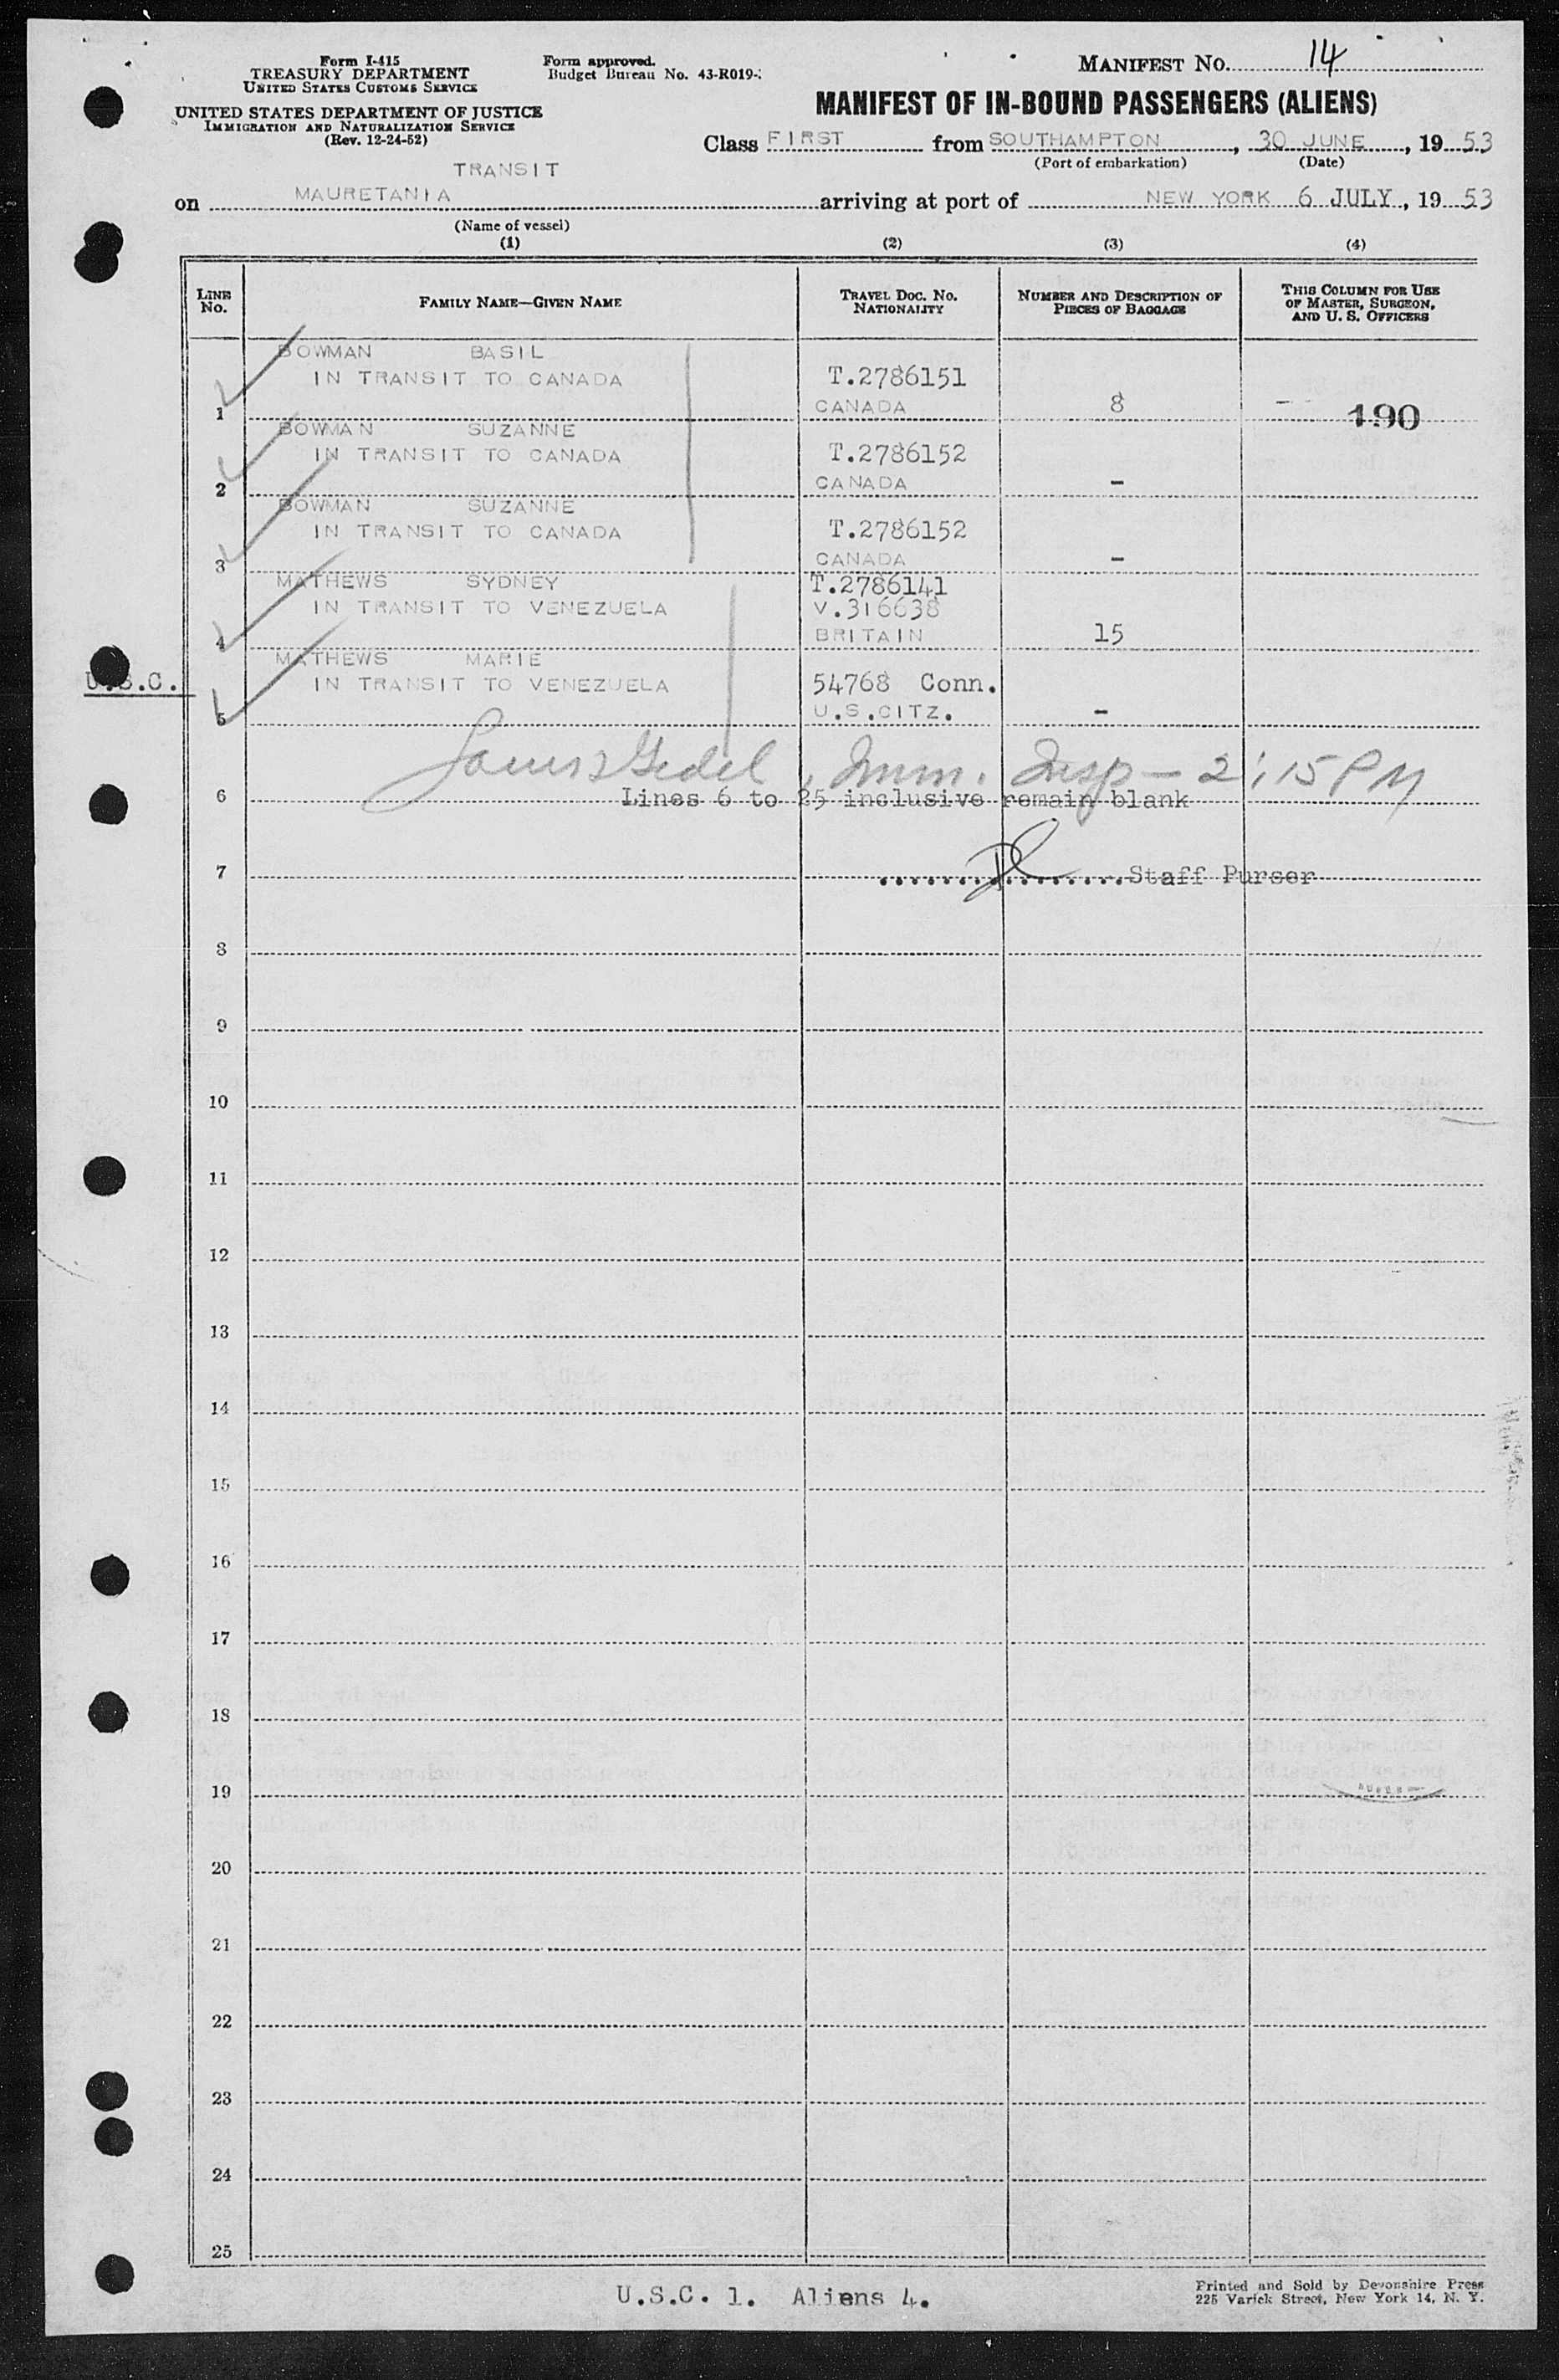 Form I-415
TREASURY DEPARTMENT
UNITED STATES CUSTOMS SERVICE
UNITED STATES DEPARTMENT OF JUSTICE
IMMIGRATION AND NATURALIZATION SERVICE
(Rev. 12-24-52)
Form approved.
Budget Bureau No. 43-R019-
MANIFEST NO. 14
MANIFEST OF IN-BOUND PASSENGERS (ALIENS)
Class FIRST from SOUTHAMPTON, 30 JUNE, 19 53
(Port of embarkation) (Date)
TRANSIT
on MAURETANIA arriving at port of NEW YORK 6 JULY, 19 53
(Name of vessel)
(1) (2) (3) (4)
LINE NO. FAMILY NAME—GIVEN NAME TRAVEL DOC. NO. NATIONALITY NUMBER AND DESCRIPTION OF PIECES OF BAGGAGE THIS COLUMN FOR USE OF MASTER, SURGEON, AND U. S. OFFICERS
BOWMAN BASIL
IN TRANSIT TO CANADA T.2786151
1 CANADA 8 - 190
BOWMAN SUZANNE
IN TRANSIT TO CANADA T.2786152
2 CANADA -
BOWMAN SUZANNE
IN TRANSIT TO CANADA T.2786152
3 CANADA -
MATHEWS SYDNEY T.2786141
IN TRANSIT TO VENEZUELA V.316638
4 BRITAIN 15
MATHEWS MARIE
U.S.C. IN TRANSIT TO VENEZUELA 54768 Conn.
5 U.S.CITZ. -
Imm. Insp - 2:15 PM
6 Lines 6 to 25 inclusive remain blank
7 ................Staff Purser
8
9
10
11
12
13
14
15
16
17
18
19
20
21
22
23
24
25
U.S.C. 1. Aliens 4.
Printed and Sold by Devonshire Press
225 Varick Street, New York 14, N. Y.